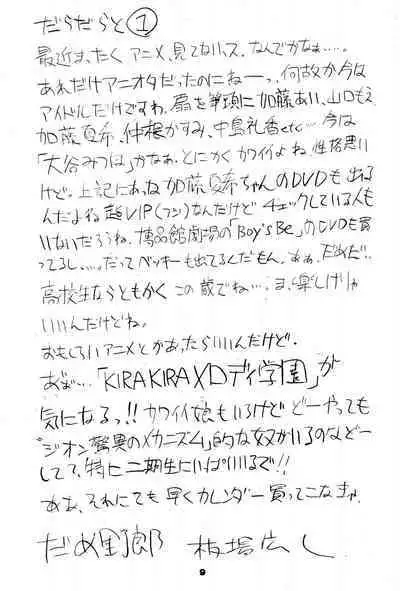 だらだらと①
最近まったくアニメ、見てないス、なんでかなぁ……。
あれだけアニオタだったのにねーっ、何故か今は
アイドルだけですわ。扇を筆頭に加藤あい、山口もえ
加藤夏希、仲根かすみ、中島礼香etc…今は
「大谷みつほ」かなぁ、とにかくカワイイよね、性格悪い
けど。上記にある加藤夏希ちゃんのDVDも出る
んだよね 超VIP(フン)なんだけど チェックしている人も
いないだろうね。博品館劇場の「Boy's Be」のDVDも買
ってるし、…。だってベッキーも出てるんだもん。ああ、だめだ…
高校生ならともかく この歳でね…ま、楽しけりゃ
いいんだけどね。
おもしろいアニメとかあったらいいんだけど.
あぁ…「KIRAKIRAメロディ学園」が
気になるっ!!カワイイ娘もいるけど どーやっても
"ジオン驚異のメカニズム"的な奴がいるのなどー
して?、特に二期生にいっぱいいるで!!
ああ、それにても早くカレンダー買ってこなきゃ.
だめ野郎 板場広し
9